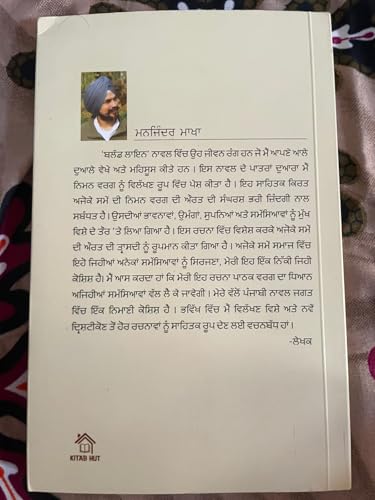 ਮਨਜਿੰਦਰ ਮਾਖਾ
'ਬਲੰਡ ਲਾਇਨ' ਨਾਵਲ ਵਿੱਚ ਉਹ ਜੀਵਨ ਰੰਗ ਹਨ ਜੋ ਮੈਂ ਆਪਣੇ ਆਲੇ
ਦੁਆਲੇ ਵੇਖੇ ਅਤੇ ਮਹਿਸੂਸ ਕੀਤੇ ਹਨ । ਇਸ ਨਾਵਲ ਦੇ ਪਾਤਰਾਂ ਦੁਆਰਾ ਮੈਂ
ਨਿਮਨ ਵਰਗ ਨੂੰ ਵਿਲੱਖਣ ਰੂਪ ਵਿੱਚ ਪੇਸ਼ ਕੀਤਾ ਹੈ । ਇਹ ਸਾਹਿਤਕ ਕਿਰਤ
ਅਜੋਕੇ ਸਮੇਂ ਦੀ ਨਿਮਨ ਵਰਗ ਦੀ ਔਰਤ ਦੀ ਸੰਘਰਸ਼ ਭਰੀ ਜ਼ਿੰਦਗੀ ਨਾਲ
ਸਬੰਧਤ ਹੈ। ਉਸਦੀਆਂ ਭਾਵਨਾਵਾਂ, ਉਮੰਗਾਂ, ਸੁਪਨਿਆਂ ਅਤੇ ਸਮੱਸਿਆਵਾਂ ਨੂੰ ਮੁੱਖ
ਵਿਸ਼ੇ ਦੇ ਤੌਰ 'ਤੇ ਲਿਆ ਗਿਆ ਹੈ। ਇਸ ਰਚਨਾ ਵਿੱਚ ਵਿਸ਼ੇਸ਼ ਕਰਕੇ ਅਜੋਕੇ ਸਮੇਂ
ਦੀ ਔਰਤ ਦੀ ਤ੍ਰਾਸਦੀ ਨੂੰ ਰੂਪਮਾਨ ਕੀਤਾ ਗਿਆ ਹੈ। ਅਜੋਕੇ ਸਮੇਂ ਸਮਾਜ ਵਿੱਚ
ਇਹੋ ਜਿਹੀਆਂ ਅਨੇਕਾਂ ਸਮੱਸਿਆਵਾਂ ਨੂੰ ਸਿਰਜਣਾ, ਮੇਰੀ ਇਹ ਇੱਕ ਨਿੱਕੀ ਜਿਹੀ
ਕੋਸ਼ਿਸ਼ ਹੈ। ਮੈਂ ਆਸ ਕਰਦਾ ਹਾਂ ਕਿ ਮੇਰੀ ਇਹ ਰਚਨਾ ਪਾਠਕ ਵਰਗ ਦਾ ਧਿਆਨ
ਅਜਿਹੀਆਂ ਸਮੱਸਿਆਵਾਂ ਵੱਲ ਲੈ ਕੇ ਜਾਵੇਗੀ । ਮੇਰੇ ਵੱਲੋਂ ਪੰਜਾਬੀ ਨਾਵਲ ਜਗਤ
ਵਿੱਚ ਇੱਕ ਨਿਮਾਣੀ ਕੋਸ਼ਿਸ਼ ਹੈ । ਭਵਿੱਖ ਵਿੱਚ ਮੈਂ ਵਿਲੱਖਣ ਵਿਸ਼ੇ ਅਤੇ ਨਵੇਂ
ਦ੍ਰਿਸ਼ਟੀਕੋਣ ਤੋਂ ਹੋਰ ਰਚਨਾਵਾਂ ਨੂੰ ਸਾਹਿਤਕ ਰੂਪ ਦੇਣ ਲਈ ਵਚਨਬੱਧ ਹਾਂ ।
-ਲੇਖਕ
KITABI HUT